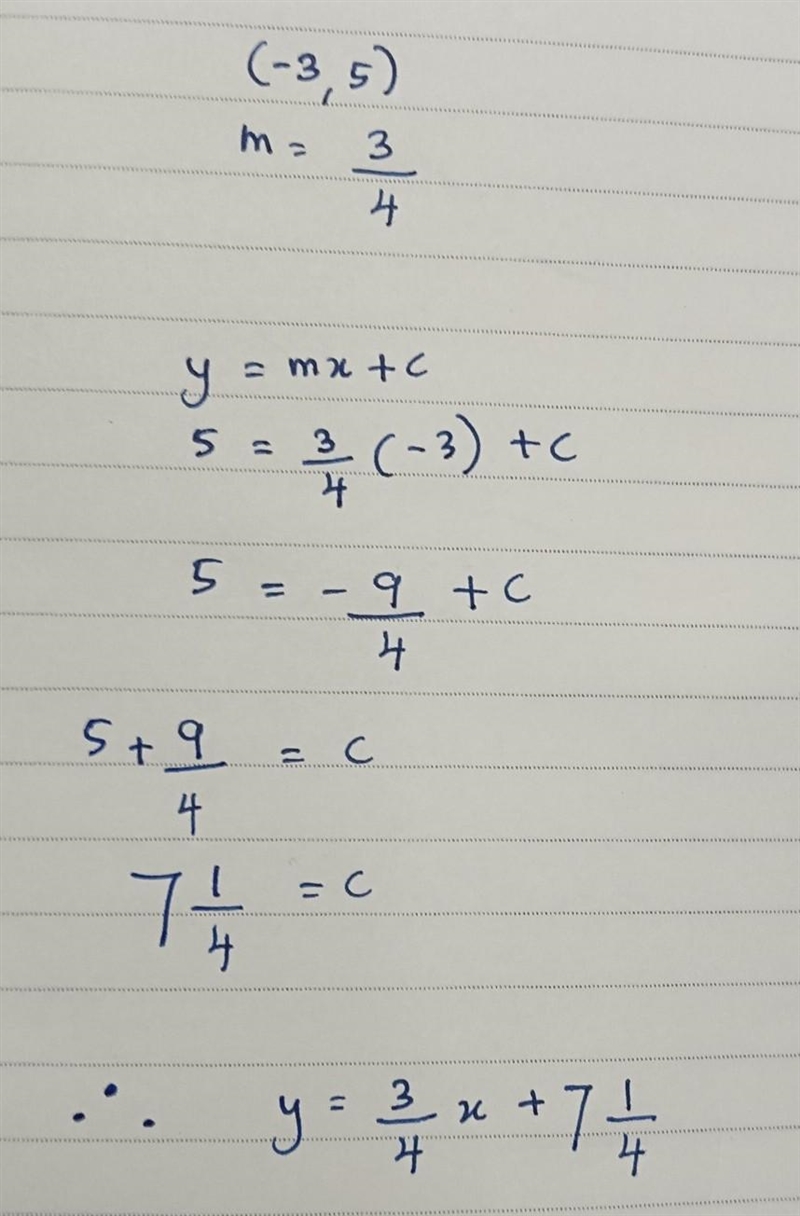 (-3, 5)
m = 3/4
y = mx + c
5 = 3/4 (-3) + c
5 = - 9/4 + c
5 + 9/4 = c
7 1/4 = c
∴ y = 3/4 x + 7 1/4